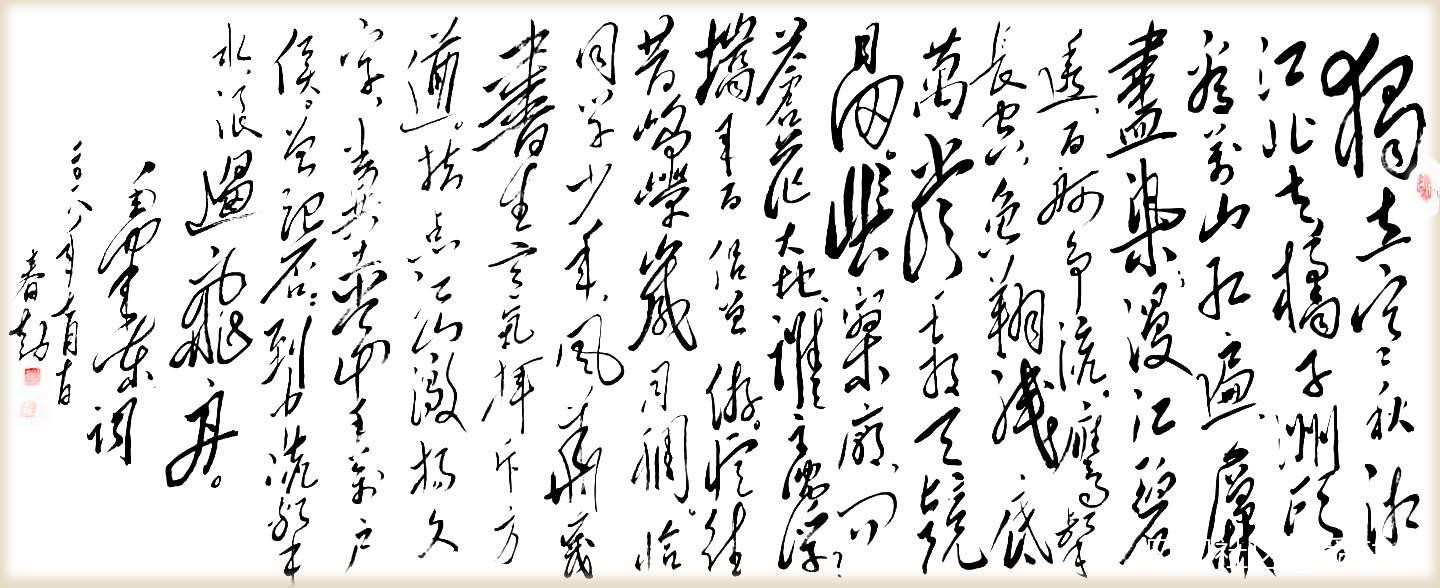 獨立寒秋湘
江北去橘子洲頭
看萬山紅遍層林
盡染漫江碧
透百舸争流鷹擊
長空魚翔淺底
萬類霜天競
自由悵寥廓問
蒼茫大地誰主沉浮
攜來百侣曾游憶往
昔崢嶸歲月稠恰
同學少年風華茂
書生意氣揮斥方
遒。指点江山激揚文
字糞土當年萬户
侯。曾記否到中流擊
水浪遏飛舟。
毛澤東詞
二〇〇八年
春